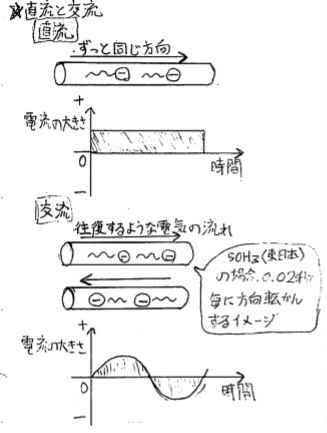 ★直流と交流
直流
ずっと同じ方向
⊖ ⊖
+
電流の大きさ
0
時間
−
交流
往復するような電気の流れ
⊖ ⊖
50Hz(東日本)
の場合、0.02秒
毎に方向転かん
するイメージ
⊖ ⊖
+
電流の大きさ
0
時間
−